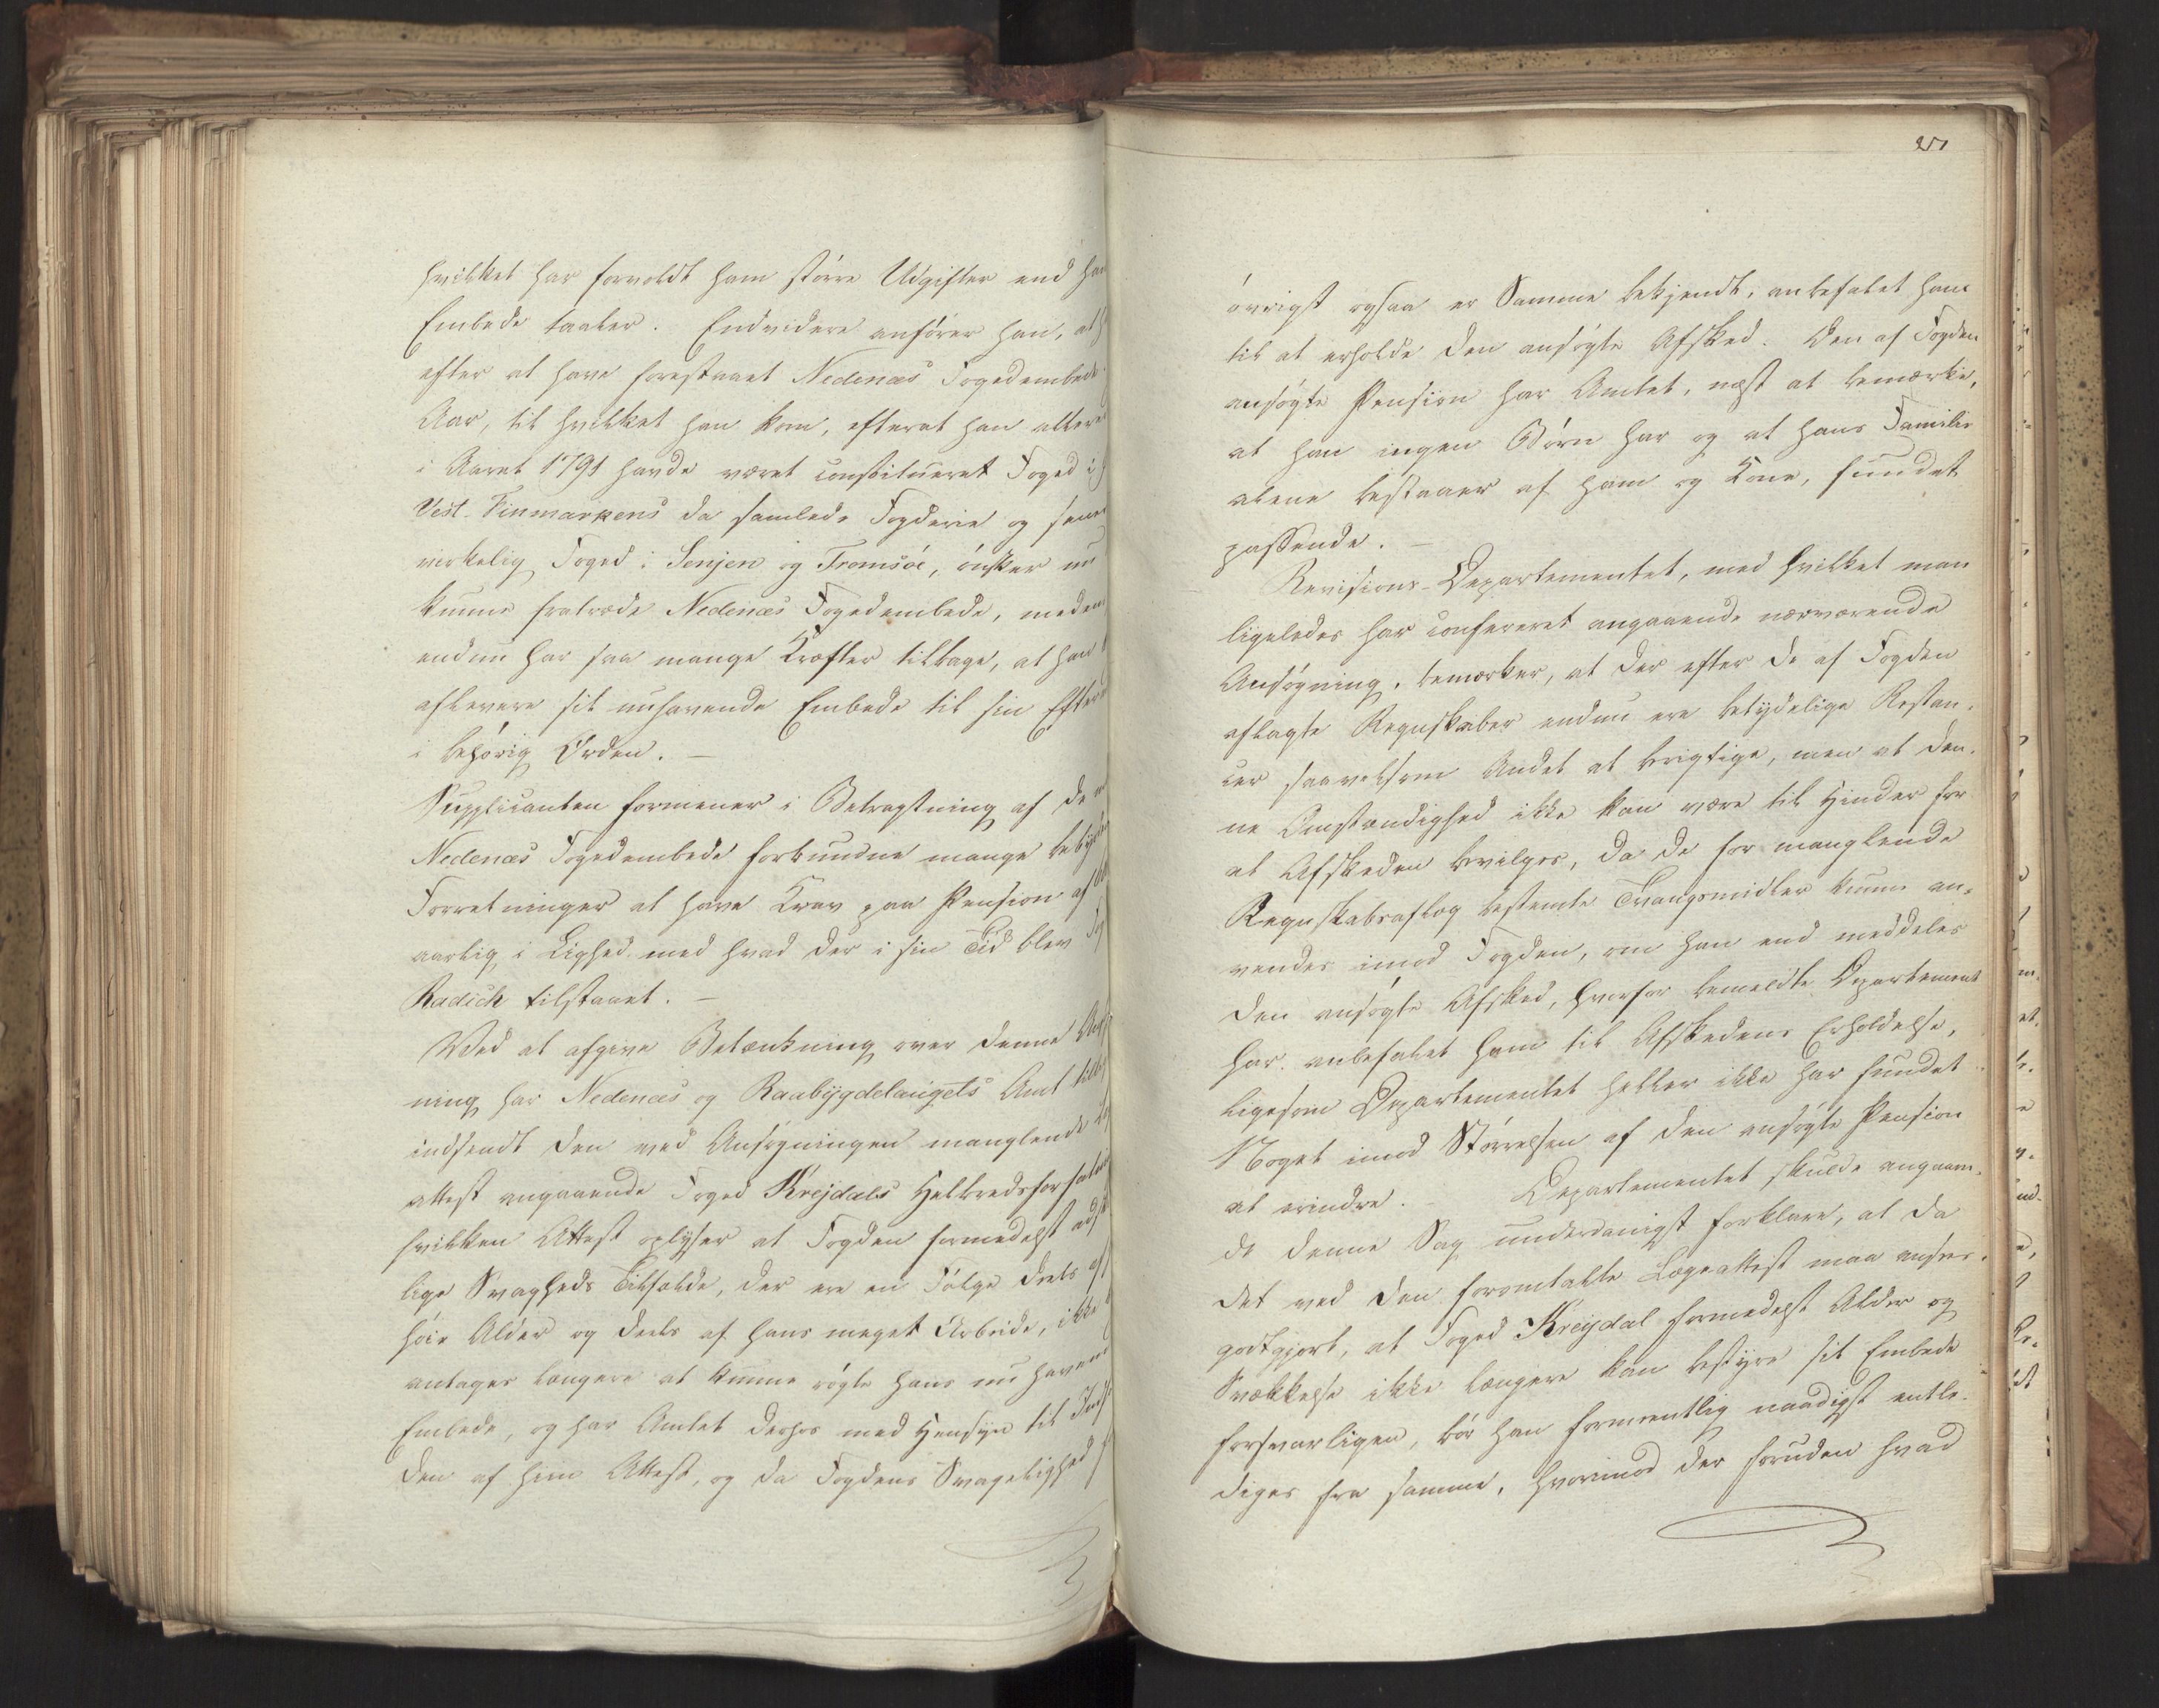 hvilket har forvoldt ham större Udgifter end
Embede taaler. Endvidere anförer han, at
efter at have forestaaet Nedenæs Fogedembede
Aar, til hvilket han kom, efterat han
i Aaret 1791 havde været constitueret Foged i
Vest-Finmarkens da samlede Fogderie og
virkelig Foged i Senjen og Tromsöe, önsker nu
kunne fratræde Nedenæs Fogedembede, medens
endnu har saa mange Kræfter tilbage, at han
aflevere sit nuhavende Embede til sin
i behörig Orden. –
Supplicanten formener i Betragtning af de
Nedenæs Fogedembede forbundne mange
Forretninger at have Krav paa Pension af
aarlig i Lighed med hvad der i sin Tid blev
Radich tilstaaet. –
Ved at afgive Betænkning over denne
ning har Nedenæs og Raabygdelaugets Amt
indsendt den ved Ansögningen manglende
attest angaaende Foged Krejdals
hvilken Attest oplyser at Fogden formedelst
lige Svagheds Tilfælde, der ere en Fölge deels af
höie Alder og deels af hans meget Arbeide, ikke
antages længere at kunne rögte hans nu
Embede, og har Amtet derhos med Hensyn til
den af ham Attest, og da Fogdens Svagelighed
251
övrigt ogsaa er Samme bekjendt, anbefalet ham
til at erholde den ansögte Afsked. Den af Fogden
ansögte Pension har Amtet, næst at bemærke,
at han ingen Börn har og at hans Familie
alene bestaaer af ham og Kone, fundet
passende. –
Revisions-Departementet, med hvilket man
ligeledes har confereret angaaende nærværende
Ansögning, bemærker, at der efter de af Fogden
aflagte Regnskaber endnu ere betydelige Restan-
cer saavelsom Andet at berigtige, men at den-
ne Omstændighed ikke kan være til Hinder for
at Afskeden bevilges, da de for manglende
Regnskabsaflæg bestemte Tvangsmidler kunne an-
vendes imod Fogden, om han end meddeles
den ansögte Afsked, hvorfor bemeldte Departement
har anbefalet ham til Afskedens Erholdelse,
ligesom Departementet heller ikke har fundet
Noget imod Störrelsen af den ansögte Pension
at erindre. – Departementet skulde angaaen-
de denne Sag underdanigst forklare, at da
det ved den foromtalte Lægeattest maa ansees
godtgjort, at Foged Kreydal formedelst Alder og
Svækkelse ikke længere kan bestyre sit Embede
forsvarligen, bör han formeentlig naadigst entle-
diges fra samme, hvorimod der foruden hvad